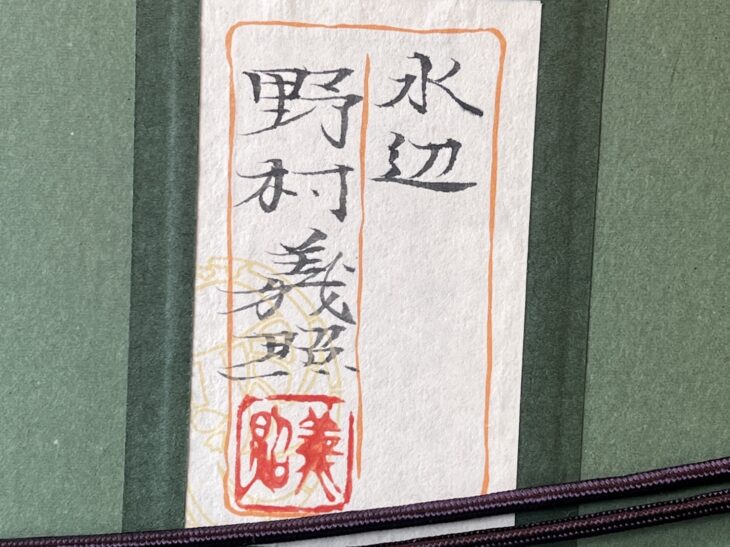 水辺
野村義照
義照